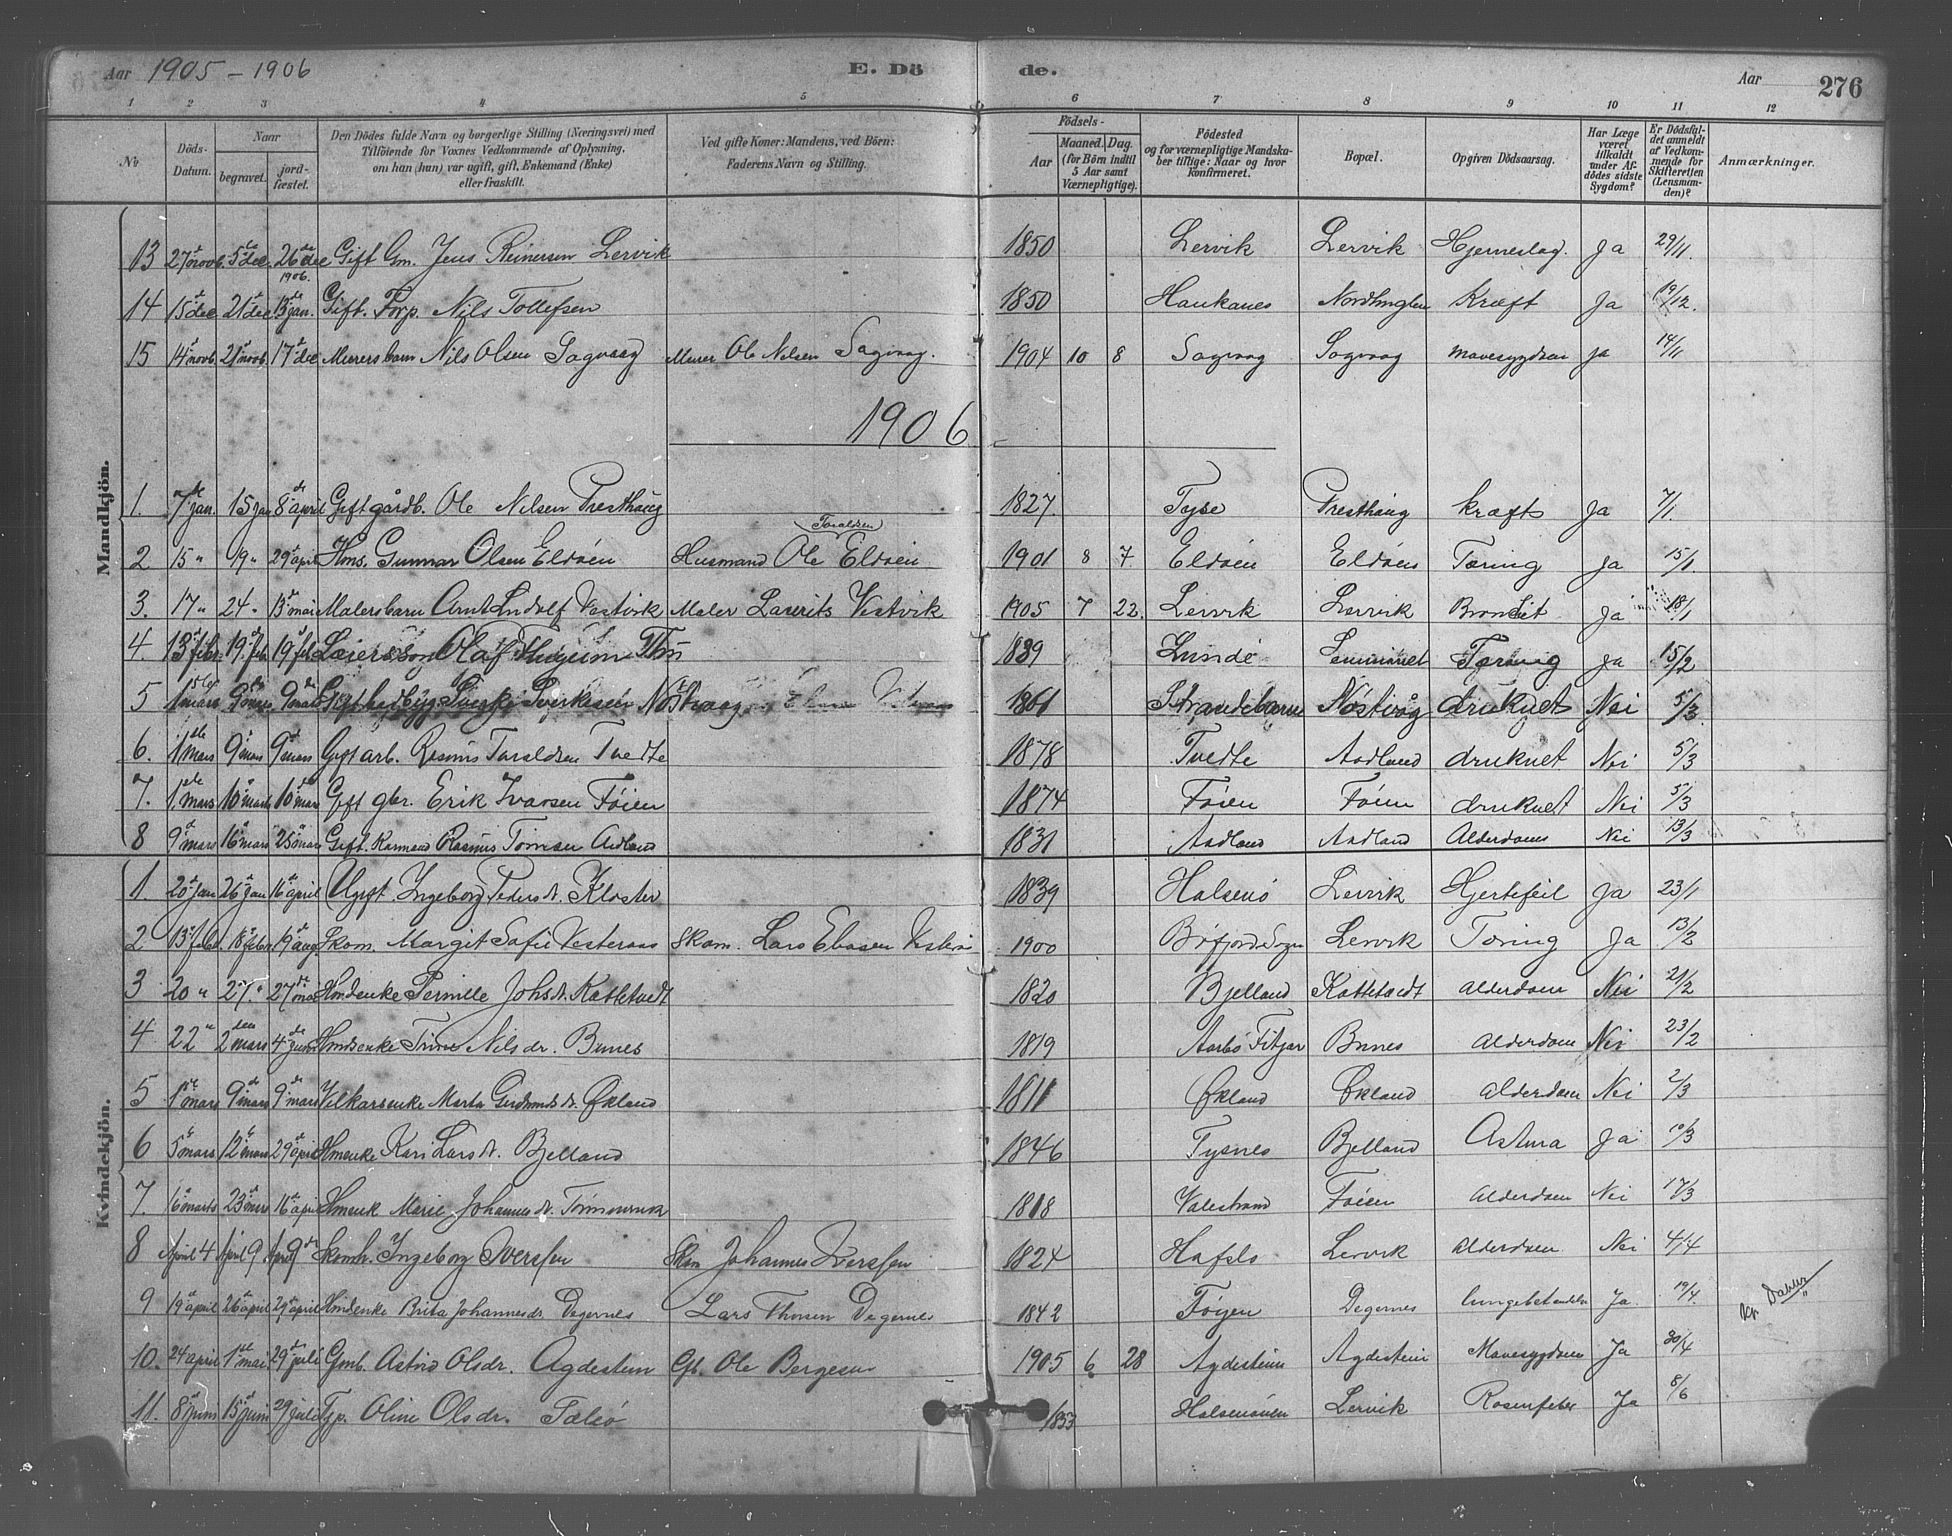 Aar 1905 - 1906 E. Dö de. Aar 276
1 2 3 4 5 6 7 8 9 10 11 12
No
Döds-Datum.
Naar begravet. jord-fæstet.
Den Dödes fulde Navn og borgerlige Stilling (Næringsvei) med
Tilföiende for Voxnes Vedkommende af Oplysning,
om han (hun) var ugift, gift, Enkemand (Enke)
eller fraskilt.
Ved gifte Koner: Mandens, ved Börn:
Faderens Navn og Stilling.
Födsels-
Aar Maaned. Dag.
(for Börn indtil
5 Aar samt
Værnepligtige).
Födested
og for værnepligtige Mandska-
ber tillige: Naar og hvor
konfirmeret.
Bopæl.
Opgiven Dödsaarsag.
Har Læge
været
tilkaldt
under Af-
dödes sidste
Sygdom?
Er Dödsfal-
det anmeldt
af Vedkom-
mende for
Skifteretten
(Lensman-
den)?
Anmærkninger.
Mandkjön.
13 27 novb. 5 dec. 26 dec Gift Gm. Jens Reinersen Lervik 1850 Lervik Lervik Hjerneslag. Ja 29/11.
1906.
14 15 dec 21 dec 13 jan. Gift. Forp. Nils Tollefsen 1850 Haukanes Kræft Ja 19/12.
15 14 novb. 21 novb. 17 dec Murersbarn Nils Olsen Sagvaag Murer Ole Nilsen Sagvaag. 1904 10 8 Sagvaag Sagvaag Mavesygdom ja 14/11
1906
1. 7 jan. 15 jan 8 april Gift gårdb. Ole Nilsen Presthaug 1827. Tyse Presthaug Kræft Ja 7/1.
Toraldsen
2 15 " 19 " 29 april Hms. Gunnar Olsen Eldøen Husmand Ole Eldøen 1901 8 7 Eldøen Eldøen Tæring Ja 15/1.
3. 17 " 24 " 13 mai Malersbarn Arnt Ludolf Vestvik Maler Laurits Vestvik 1905 7 22. Lervik Lervik Ja 18/1
4. 13 febr. 19 feb. 19 feb. Olaf 1889 Lunde Tæring Ja 15/2
5 1 mars 9 mars 9 mars Gift Sverkesen Nøstvaag 1861 Strandebarm Nøstvåg druknet Nei 5/3.
6. 1 mars 9 mars 9 mars Gift arb. Rasmus Toraldsen Tvedte 1878 Tvedte Aadland druknet Nei 5/3
7. 1. mars 10 mars 10 mars Gift gbr. Erik Ivarsen Føien 1874 Føien Føien druknet Nei 5/3
8 9 mars 16 mars 25 mars Gift. Rasmus Aadland 1831 Aadland Aadland Alderdom Nei 13/3
Kvindekjön.
1. 20 jan 26 jan 16 april Ugift Ingeborg Pedersdt. Kloster 1839 Halsenö Lervik Hjertefeil Ja 23/1
2 13 febr 18 febr 19 aug. Skom. Margit Sofie Vesteraas Skom. Lars 1900 Lervik Tæring Ja 13/2
3 20 " 27. " 27 mai Pernille Johsdt. Kattetvedt 1820 Bjelland Kattetvedt Alderdom Nei 21/2
4 22 " 2 mars 4 juni Trine Nilsdr. Bunes 1819 Fitjar Bunes Alderdom Nei 23/2
5 1 mars 9 mars 9 mars Vilkarsenke Marta Gudmundsdt. Økland 1811 Økland Økland Alderdom Nei 2/3
6 5 mars 12 mars 29 april Hmenke Kari Larsdt. Bjelland 1846 Tysnes Bjelland Astma Ja 10/3
7. 16 marts 23 mars 16 april Hmenk Marie Johannesdt. 1818 Valestrand Føien Alderdom Nei 17/3
8 April 4 April 9 April 9 Skomh. Ingeborg Iverssen Skm Johannes Iverssen 1824 Hafslo Lervik Alderdom Nei 4/4
9 19 april 26 april 29 april Brita Johannesdr. Degernes Lars Degernes 1842 Føyen Degernes Ja. 19/4.
10. 24 april 1 mai 29 juli Gmb. Astrid Olsdr. Agdestein Gb. Ole Bergesen 1905 6 28 Agdestein Agdestein Mavesygdom Ja 30/4
11. 8 juni 15 juni 29 juli Oline Olsdr. 1853 Halsenöien Lervik Ja 8/6